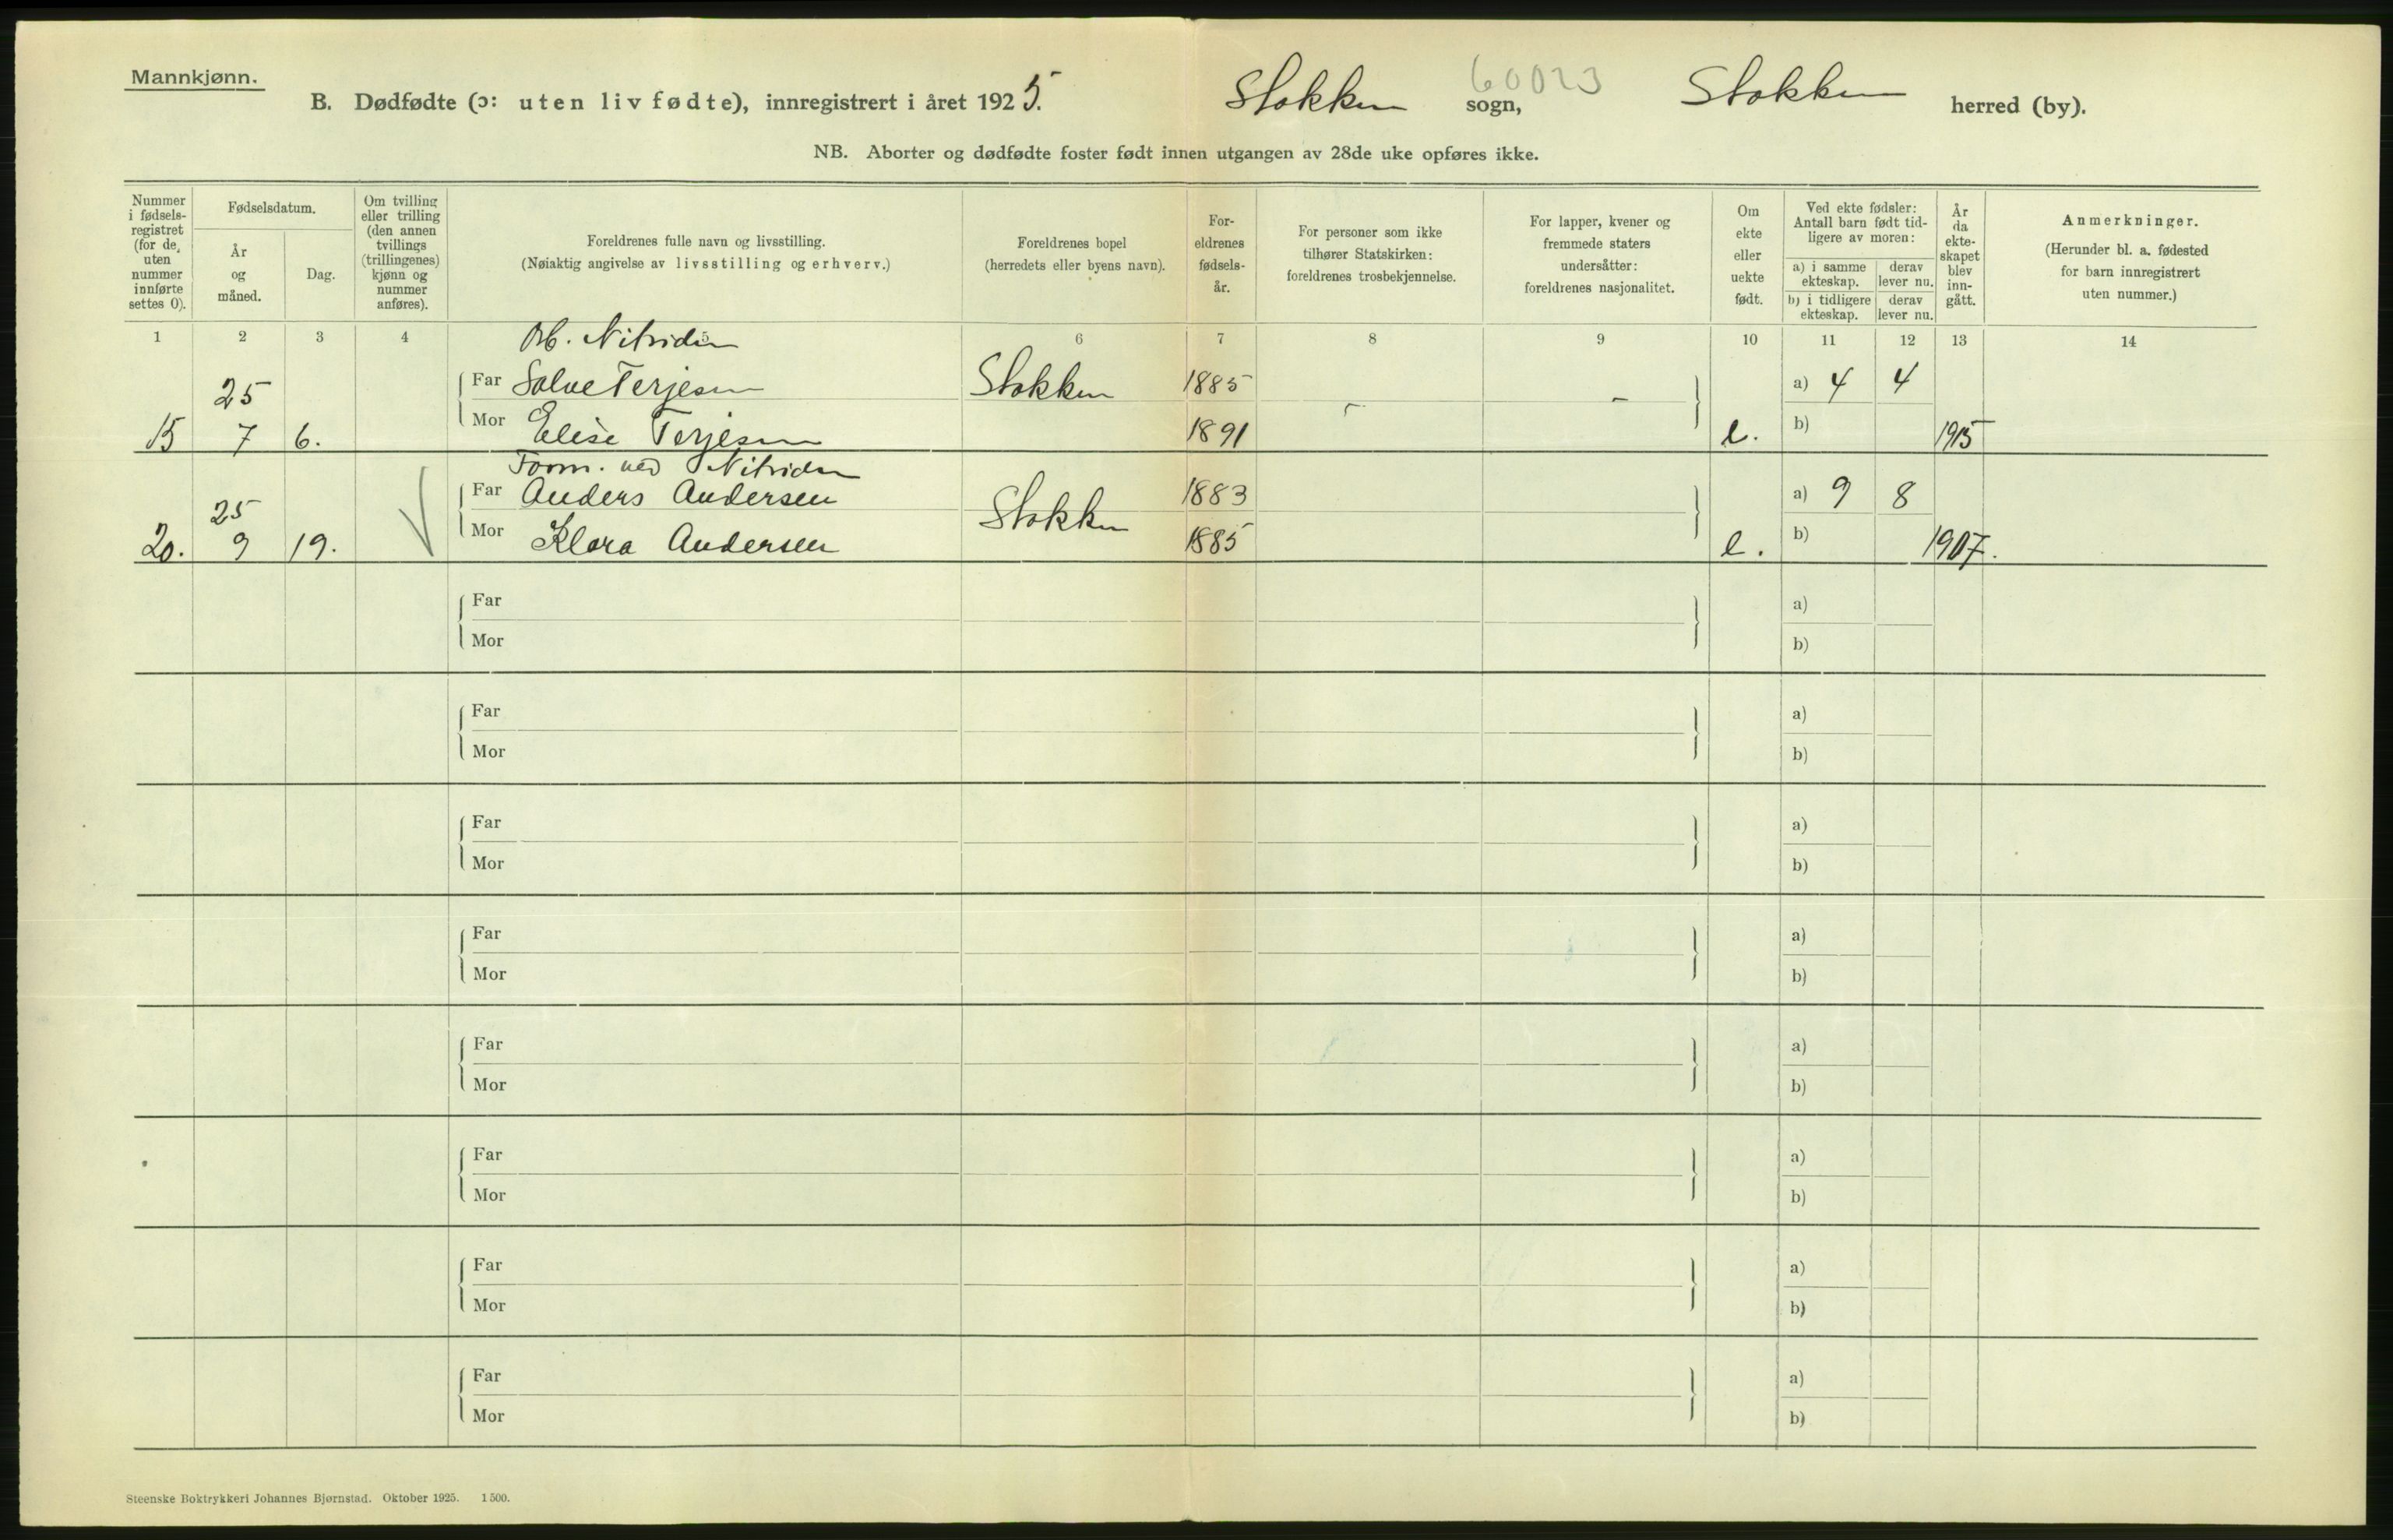 Mannkjønn.
B. Dødfødte (ɔ: uten liv fødte), innregistrert i året 1925. Stokken sogn, 60023 Stokken herred (by).
NB. Aborter og dødfødte foster født innen utgangen av 28de uke opføres ikke.
Nummer i fødsels-registret (for de uten nummer innførte settes 0).
Fødselsdatum.
År og måned.
Dag.
Om tvilling eller trilling (den annen tvillings (trillingenes) kjønn og nummer anføres).
Foreldrenes fulle navn og livsstilling.
(Nøiaktig angivelse av livsstilling og erhverv.)
Foreldrenes bopel
(herredets eller byens navn).
For-eldrenes fødsels-år.
For personer som ikke tilhører Statskirken: foreldrenes trosbekjennelse.
For lapper, kvener og fremmede staters undersåtter: foreldrenes nasjonalitet.
Om ekte eller uekte født.
Ved ekte fødsler: Antall barn født tid-ligere av moren:
a) i samme ekteskap. derav lever nu.
b) i tidligere ekteskap. derav lever nu.
År da ekte-skapet blev inn-gått.
Anmerkninger.
(Herunder bl. a. fødested for barn innregistrert uten nummer.)
1 2 3 4 5 6 7 8 9 10 11 12 13 14
Arb. Nitriden
25 Far Salve Terjesen Stokken 1885 - - a) 4 4
15 7 6. Mor Elise Terjesen 1891 e. b) 1915
Form. ved Nitriden
25 Far Anders Andersen Stokken 1883 a) 9 8
20. 9 19. Mor Klara Andersen 1885 e. b) 1907.
Far a)
Mor b)
Far a)
Mor b)
Far a)
Mor b)
Far a)
Mor b)
Far a)
Mor b)
Far a)
Mor b)
Far a)
Mor b)
Far a)
Mor b)
Steenske Boktrykkeri Johannes Bjørnstad. Oktober 1925. 1500.